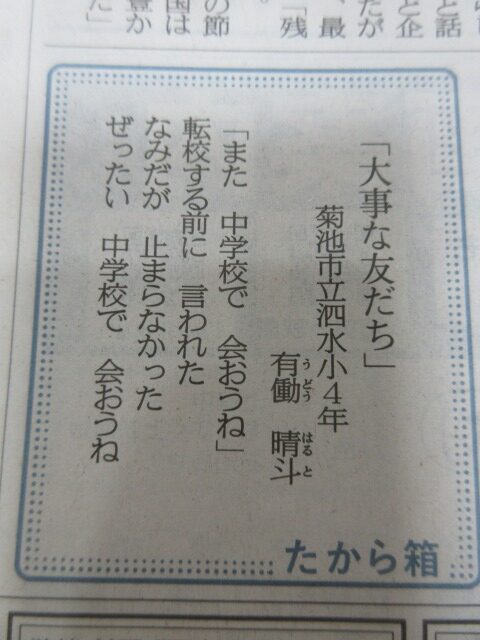 らし
と話
と企
たが
、最
「残
の節
国は
豊か
た」
「大事な友だち」
菊池市立泗水小４年
有働　晴斗
うどう　はると
「また　中学校で　会おうね」
転校する前に　言われた
なみだが　止まらなかった
ぜったい　中学校で　会おうね
たから箱